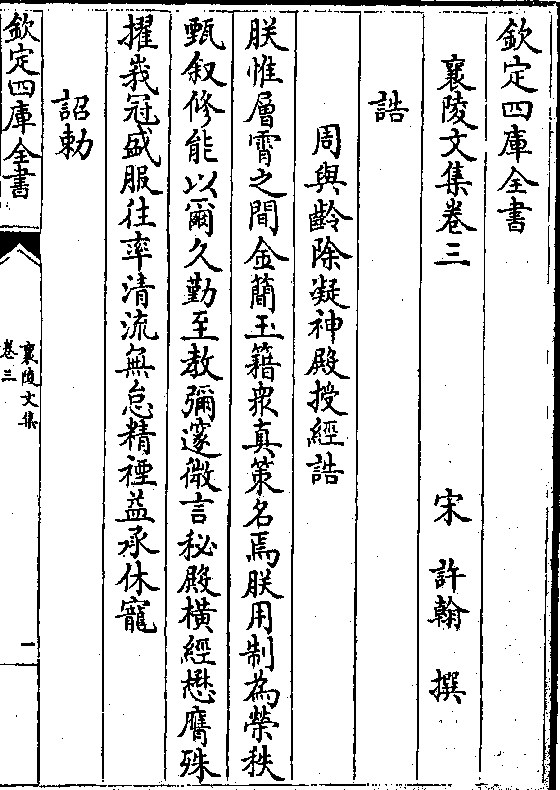 欽定四庫全書
襄陵文集卷三
宋 許翰 撰
誥
周與齡除凝神殿授經誥
朕惟層霄之間金簡玉籍衆真策名焉朕用制為榮秩
甄叙修能以爾久勤至教彌邃微言秘殿橫經懋膺殊
擢峩冠盛服往率清流無怠精禋益承休寵
詔勅
欽定四庫全書
襄陵文集
卷三
一